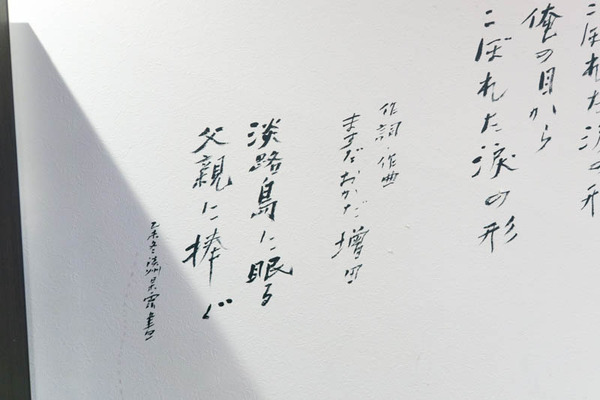 こぼれた涙の形
俺の目から
こぼれた涙の形
作詞・作曲
ますだおかだ 増田
淡路島に眠る
父親に捧ぐ